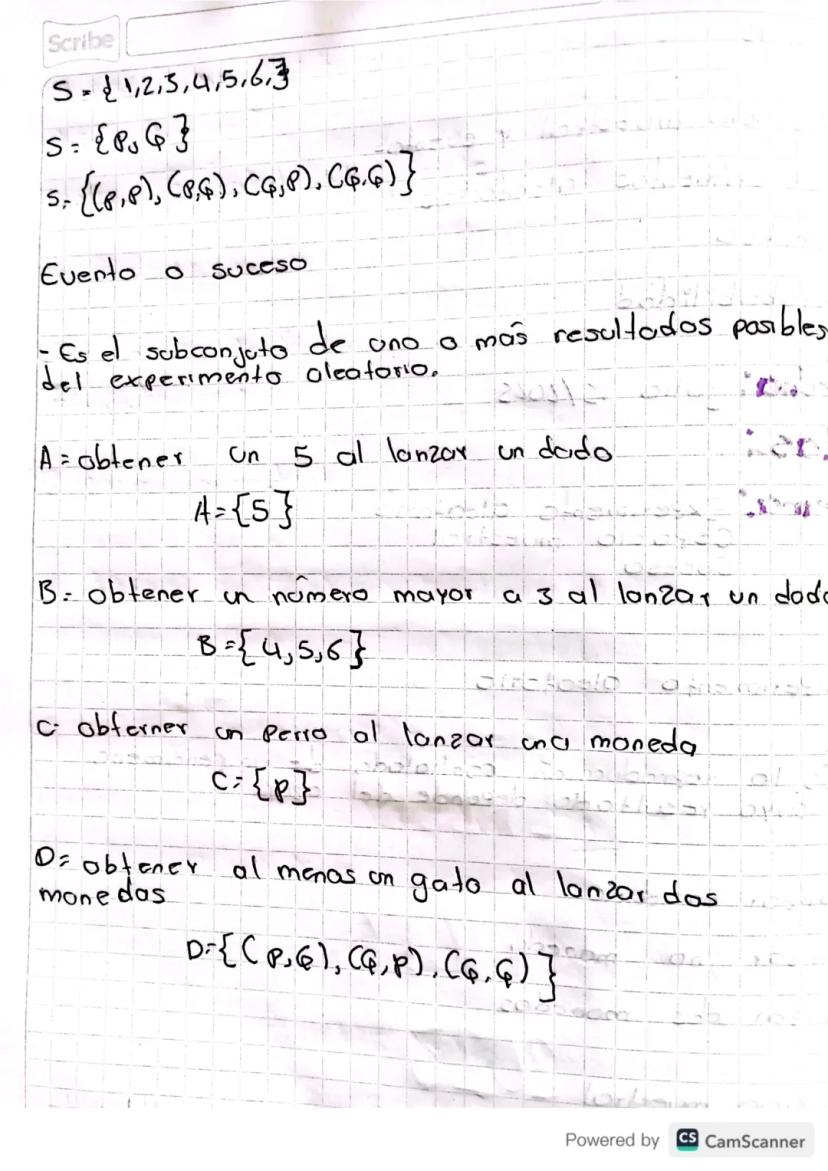 Scribe
S = {1,2,3,4,5,6,}
S = {P, G}
S = {(P,P), (P,G), (G,P), (G,G)}
Evento o suceso
- Es el subconjuto de uno o más resultados posibles
del experimento aleatorio.
A = obtener un 5 al lanzar un dado
A = {5}
B = obtener un número mayor a 3 al lanzar un dado
B = {4,5,6}
C = obterner un perro al lanzar una moneda
C = {P}
D = obtener al menos un gato al lanzar dos
monedas
D = {(P,G), (G,P), (G,G)}
Powered by CS CamScanner